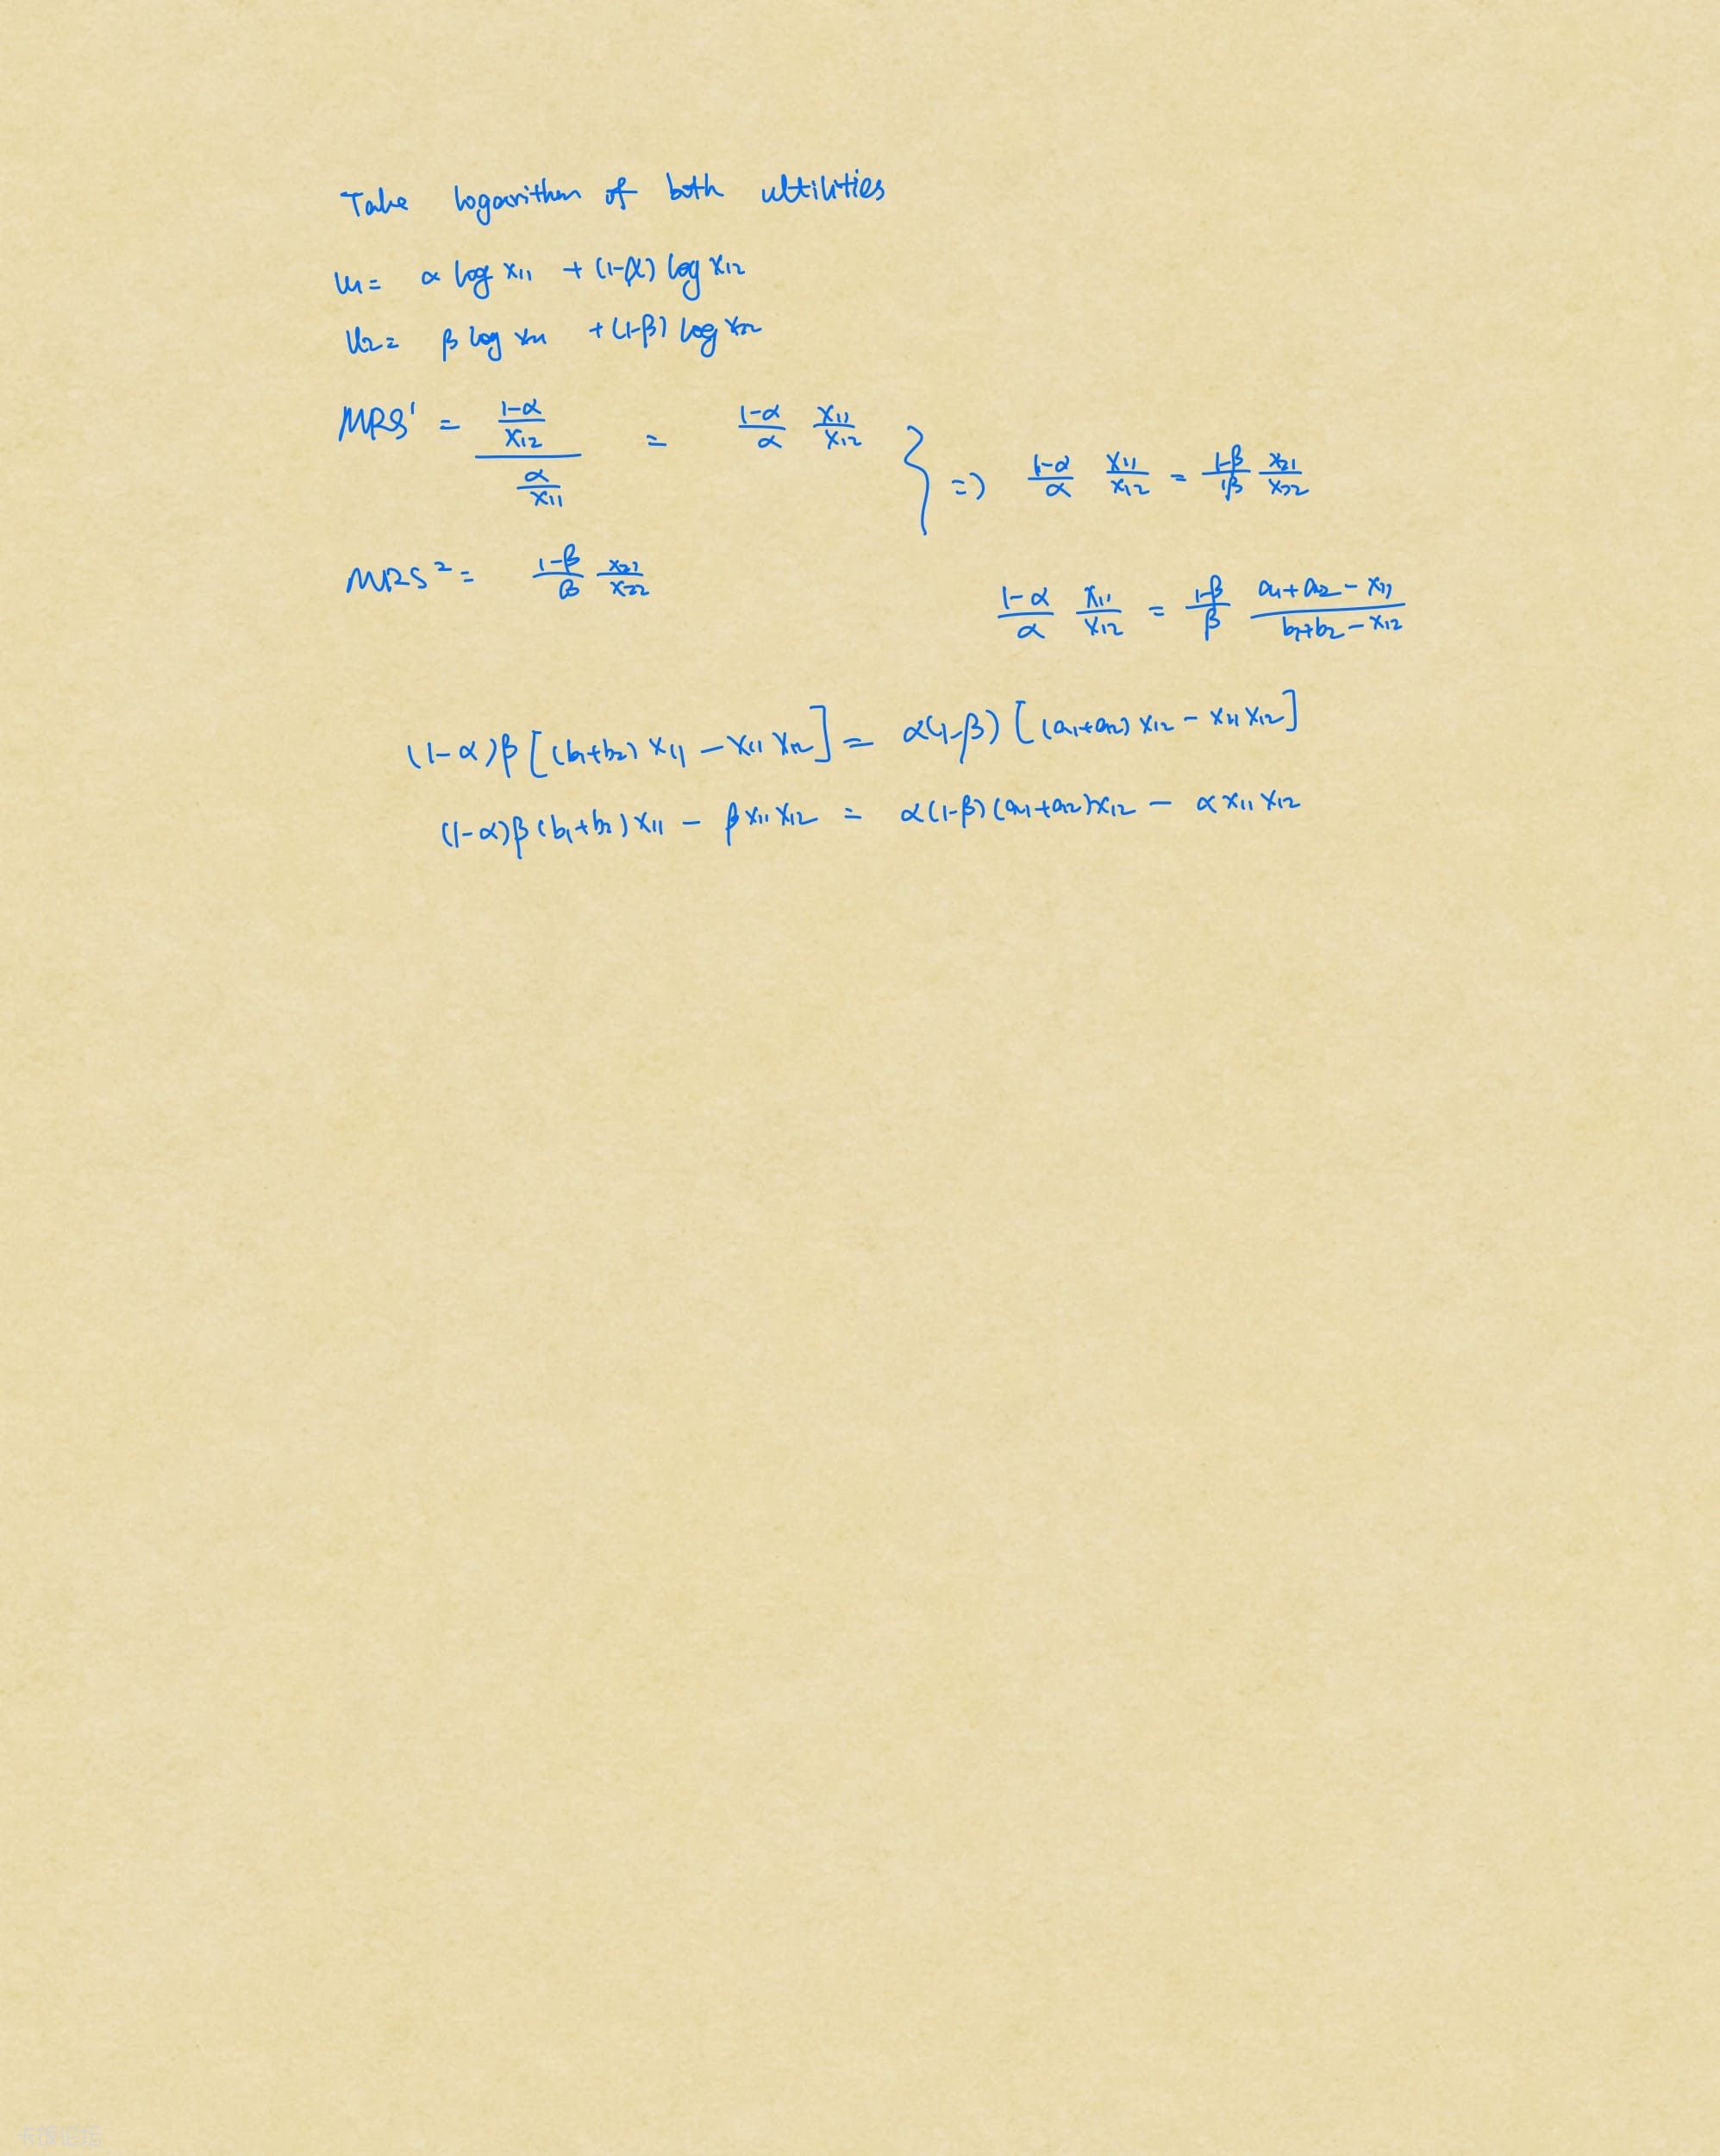 Take logarithm of both ultilities
u1 = α log x11 + (1-α) log x12
u2 = β log x21 + (1-β) log x22
MRS¹ = ((1-α)/x12)/(α/x11) = (1-α)/α x11/x12 } => (1-α)/α x11/x12 = (1-β)/β x21/x22
MRS² = (1-β)/β x21/x22
(1-α)/α x11/x12 = (1-β)/β (a1+a2-x11)/(b1+b2-x12)
(1-α)β[(b1+b2)x11 - x11x12] = α(1-β)[(a1+a2)x12 - x11x12]
(1-α)β(b1+b2)x11 - βx11x12 = α(1-β)(a1+a2)x12 - αx11x12